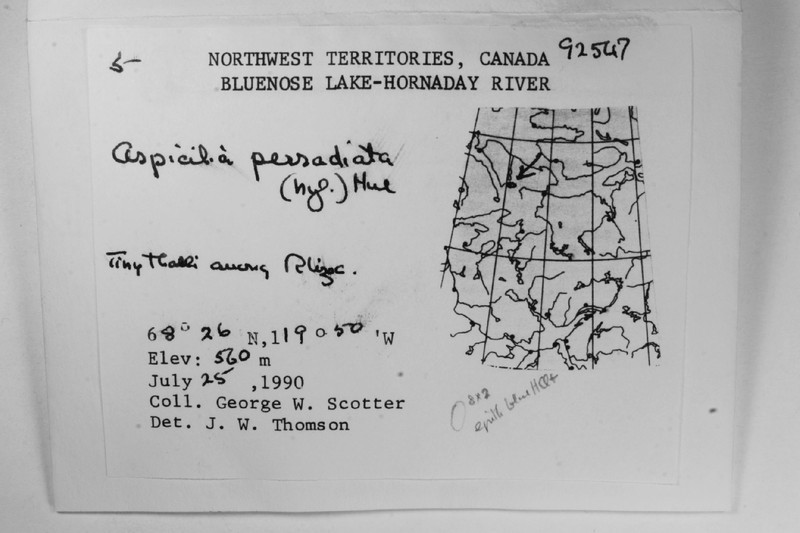 5-
NORTHWEST TERRITORIES, CANADA 92547
BLUENOSE LAKE-HORNADAY RIVER
Aspicilia perradiata
(Nyl.) Hue
Tiny thalli among Rhizoc.
68° 26 N, 119° 50 'W
Elev: 560 m
July 25 ,1990
Coll. George W. Scotter
Det. J. W. Thomson
8x2
epith blue